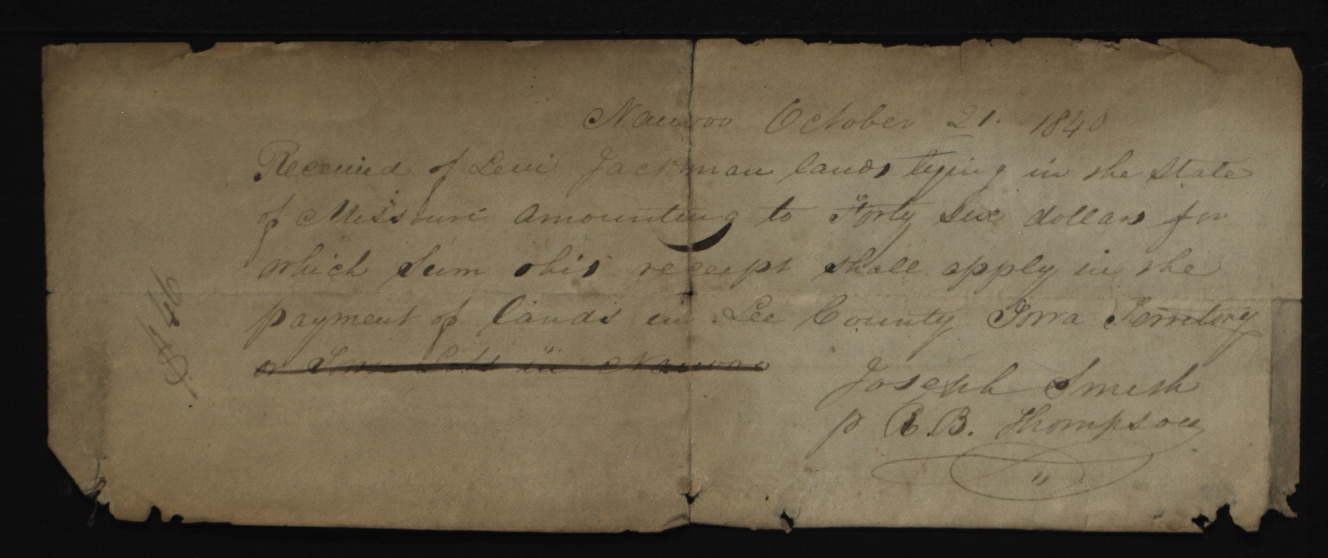 Nauvoo October 21. 1840
Received of Levi Jackman lands lying in the State
of Missouri amounting to Forty Six dollars for
which Sum this receipt shall apply in the
payment of lands in Lee County Iowa Territory
or Town Lots in Nauvoo
Joseph Smith
p R. B. Thompson
$46